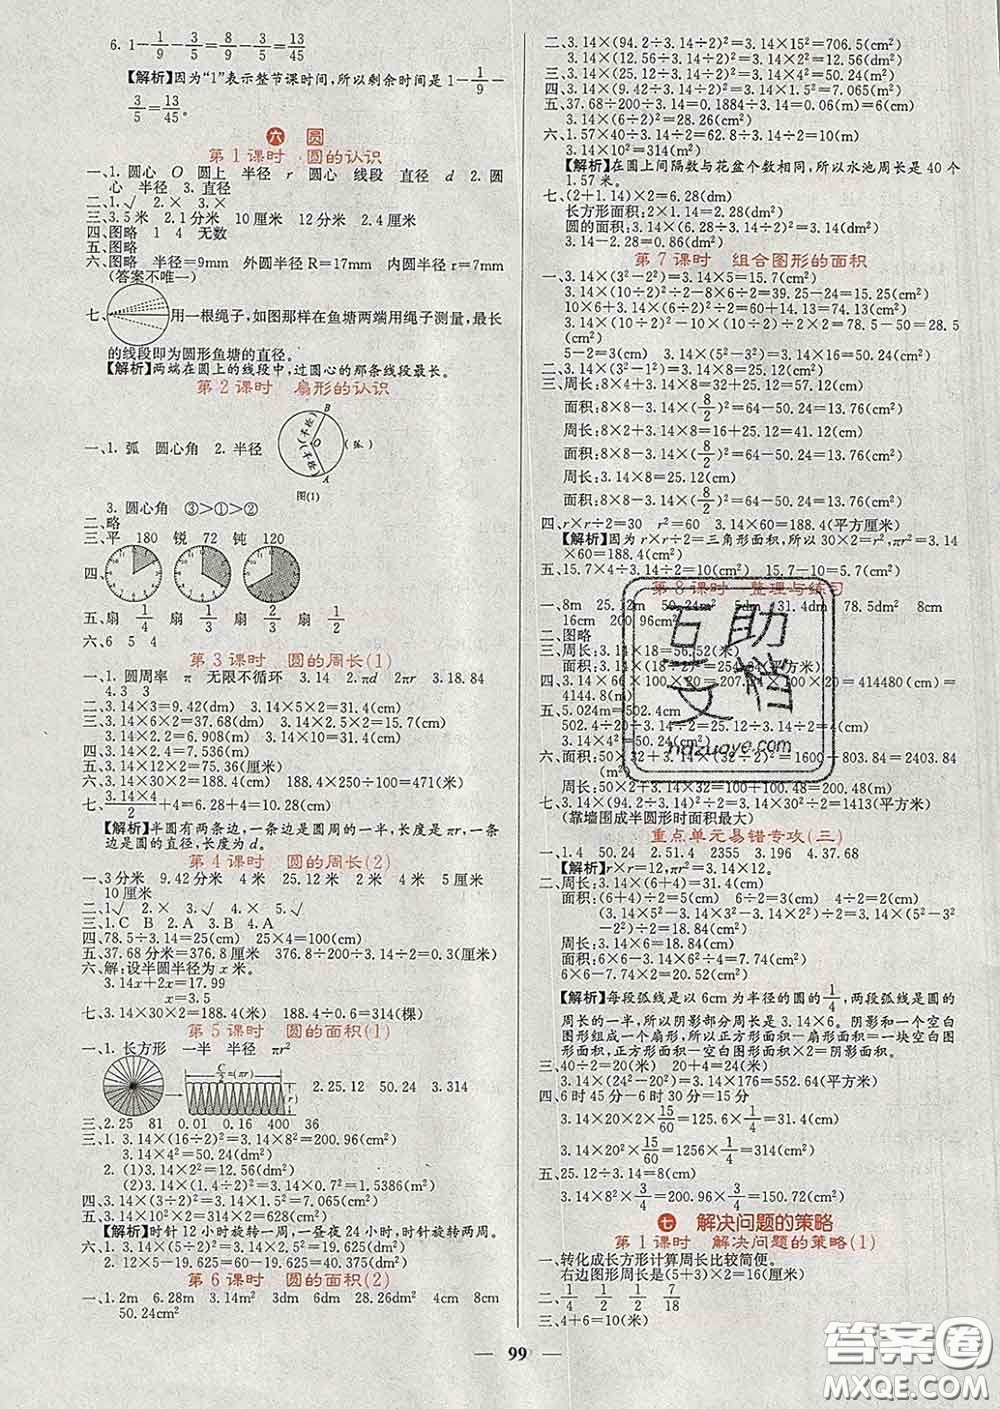 6. 1-1/9-3/5=8/9-3/5=13/45
【解析】因为“1”表示整节课时间,所以剩余时间是1-1/9-
3/5=13/45。
六 圆
第1课时 圆的认识
一、1. 圆心 O 圆上 半径 r 圆心 线段 直径 d 2. 圆
心 半径 3. 直径
二、1.√ 2.× 3.×
三、3.5米 2.1分米 10厘米 12分米 2.4厘米
四、图略 1 4 无数
五、图略
六、图略 半径=9mm 外圆半径R=17mm 内圆半径r=7mm
(答案不唯一)
七、用一根绳子,如图那样在鱼塘两端用绳子测量,最长
的线段即为圆形鱼塘的直径。
【解析】两端在圆上的线段中,过圆心的那条线段最长。
第2课时 扇形的认识
一、1. 弧 圆心角 2. 半径
B
O
A
(弧)
(半径)
(半径)
图(1)
3. 圆心角 ③>①>②
二、略
三、平 180 锐 72 钝 120
四、
五、扇 1/4 扇 1/3 扇 1/2 扇 2/3
六、6 5 4
第3课时 圆的周长(1)
一、1. 圆周率 π 无限不循环 3.14 2. πd 2πr 3. 18.84
4. 3 3
二、3.14×3=9.42(dm) 3.14×5×2=31.4(cm)
三、3.14×6×2=37.68(dm) 3.14×3=9.42(cm)
3.14×2.2=6.908(m) 3.14×10=31.4(cm)
四、3.14×2.4=7.536(m)
五、3.14×12×2=75.36(厘米)
六、3.14×30×2=188.4(cm) 188.4×250÷100=471(米)
七、3.14×4/2+4=6.28+4=10.28(cm)
【解析】半圆有两条边,一条边是圆周的一半,长度是πr,一条
边是圆的直径,长度为d。
第4课时 圆的周长(2)
一、3分米 9.42分米 4米 25.12米 2米 4米 6厘米
10厘米
二、1.√ 2.× 3.√ 4.× 5.√
三、1. C B 2. A 3. B 4. A
四、78.5÷3.14=25(cm) 25×4=100(cm)
五、37.68分米=376.8厘米 376.8÷200÷3.14÷2=0.3(厘米)
六、解:设半圆半径为x米。
3.14x+2x=17.99
x=3.5
七、3.14×30×2=188.4(米) 188.4÷0.6=314(棵)
第5课时 圆的面积(1)
一、1. 长方形 一半 半径 πr²
C/2=(πr) 2. 25.12 50.24 3. 314
二、2.25 81 0.01 0.16 400
三、1. 3.14×(16÷2)²=3.14×8²=200.96(cm²)
3.14×4²=50.24(dm²)
2. (1)3.14×2²=12.56(dm²)
(2)3.14×(1.4÷2)²=3.14×0.7²=1.5386(m²)
四、3.14×(3÷2)²=3.14×1.5²=7.065(cm²)
五、3.14×10²×2=314×2=628(cm²)
【解析】时针12小时旋转一周,一昼夜24小时,时针旋转两周。
六、1. 3.14×(5÷2)²=3.14×2.5²=19.625(dm²)
2. 12×5-19.625=60-19.625=40.375(dm²)
第6课时 圆的面积(2)
一、1.2m 6.28m 3.14m² 3dm 6dm 28.26dm² 4cm 8cm
50.24cm²
二、3.14×(94.2÷3.14÷2)²=3.14×15²=706.5(cm²)
3.14×(12.56÷3.14÷2)²=3.14×2²=12.56(dm²)
三、3.14×(25.12÷3.14÷2)²=3.14×4²=50.24(m²)
四、3.14×(9.42÷3.14÷2)²=3.14×1.5²=7.065(m²)
五、37.68÷200÷3.14=0.1884÷3.14=0.06(m)=6(cm)
3.14×(6÷2)²=28.26(cm²)
六、1.57×40÷3.14÷2=62.8÷3.14÷2=10(m)
3.14×10²=314(m²)
【解析】在圆上间隔数与花盆个数相同,所以水池周长是40个
1.57米。
七、(2+1.14)×2=6.28(dm)
长方形面积:2×1.14=2.28(dm²)
圆的面积:3.14×(6.28÷3.14÷2)²=3.14(dm²)
3.14-2.28=0.86(dm²)
第7课时 组合图形的面积
一、3.14×(3²-2²)=3.14×5=15.7(cm²)
3.14×(10÷2)²÷2-8×6÷2=39.25-24=15.25(cm²)
10×6+3.14×(6÷2)²÷2=60+14.13=74.13(cm²)
3.14×(10÷2)²-10×(10÷2)÷2×2=78.5-50=28.5
(cm²)
5-2=3(cm) 3.14×(5²-3²)÷2=25.12(cm²)
二、3.14×(3²-1²)=3.14×8=25.12(m²)
三、周长:8×4+3.14×8=32+25.12=57.12(cm)
面积:8×8-3.14×(8/2)²=64-50.24=13.76(cm²)
周长:8×2+3.14×8=16+25.12=41.12(cm)
面积:8×8-3.14×(8/2)²=64-50.24=13.76(cm²)
周长:3.14×8=25.12(cm)
面积:8×8-3.14×(8/2)²=64-50.24=13.76(cm²)
四、r×r÷2=30 r²=60 3.14×60=188.4(平方厘米)
【解析】因为r×r÷2=三角形面积,所以30×2=r²,πr²=3.14×
60=188.4。
五、15.7×4÷3.14÷2=10(cm) 15.7-10=5.7(cm)
第8课时 整理与练习
一、8m 25.12m 50.24m² 5dm 31.4dm 78.5dm² 8cm
16cm 200.96cm²
二、图略
三、周长:3.14×18=56.52(米)
面积:3.14×(18÷2)²=254.34(平方米)
四、3.14×66×100×20=207.24×100×20=414480(cm)=
4144.8(m)
五、5.024m=502.4cm
502.4÷20÷3.14÷2=25.12÷3.14÷2=4(cm)
3.14×4²=50.24(cm²)
六、面积:50×32+3.14×(32÷2)²=1600+803.84=2403.84
(m²)
周长:50×2+3.14×32=100+100.48=200.48(m)
七、3.14×(94.2÷3.14)²÷2=3.14×30²÷2=1413(平方米)
(靠墙围成半圆形时面积最大)
重点单元易错专攻(三)
一、1. 4 50.24 2. 51.4 2355 3. 196 4. 37.68
【解析】r×r=12,πr²=3.14×12。
二、周长:3.14×(6+4)=31.4(cm)
面积:(6+4)÷2=5(cm) 6÷2=3(cm) 4÷2=2(cm)
(3.14×5²-3.14×3²-3.14×2²)÷2=3.14×(5²-3²
-2²)÷2=18.84(cm²)
周长:3.14×6=18.84(cm)
面积:6×6-3.14×6²÷4=7.74(cm²)
6×6-7.74×2=20.52(cm²)
【解析】每段弧线是以6cm为半径的圆的1/4,两段弧线是圆的
周长的一半,所以阴影部分周长是3.14×6。阴影和一个空白
图形组成一个扇形。所以正方形面积-扇形面积=一块空白图
形面积,正方形面积-空白图形面积×2=阴影面积。
三、40÷2=20(米) 20+4=24(米)
3.14×(24²-20²)=3.14×176=552.64(平方米)
四、6时45分-6时30分=15分
3.14×20×2×15/60=125.6×1/4=31.4(cm)
3.14×20²×15/60=1256×1/4=314(cm²)
五、25.12÷3.14=8(cm)
3.14×8²×3/4=200.96×3/4=150.72(cm²)
七 解决问题的策略
第1课时 解决问题的策略(1)
一、转化成长方形计算周长比较简便。
右边图形周长是(5+3)×2=16(厘米)
二、1/4 1/2 1/2 7/18
三、4+6=10(米)
99
互助
文档
hdzuoye.com
答案圈
MXQE.COM